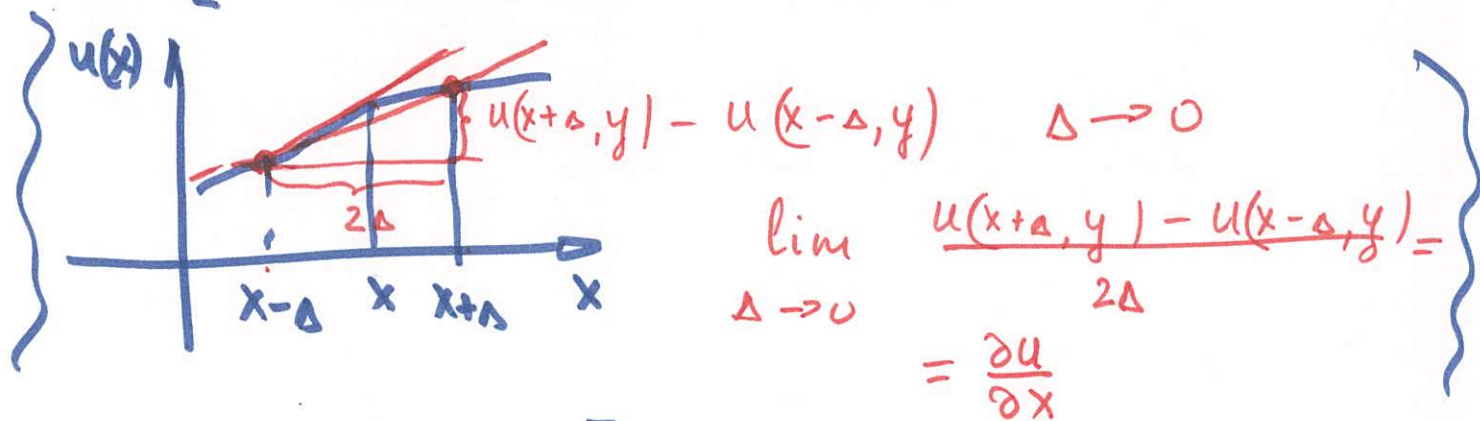 u(x)
u(x+Δ, y) - u(x-Δ, y) Δ → 0
2Δ
x-Δ x x+Δ x
lim Δ → 0 u(x+Δ, y) - u(x-Δ, y) / 2Δ =
= ∂u/∂x